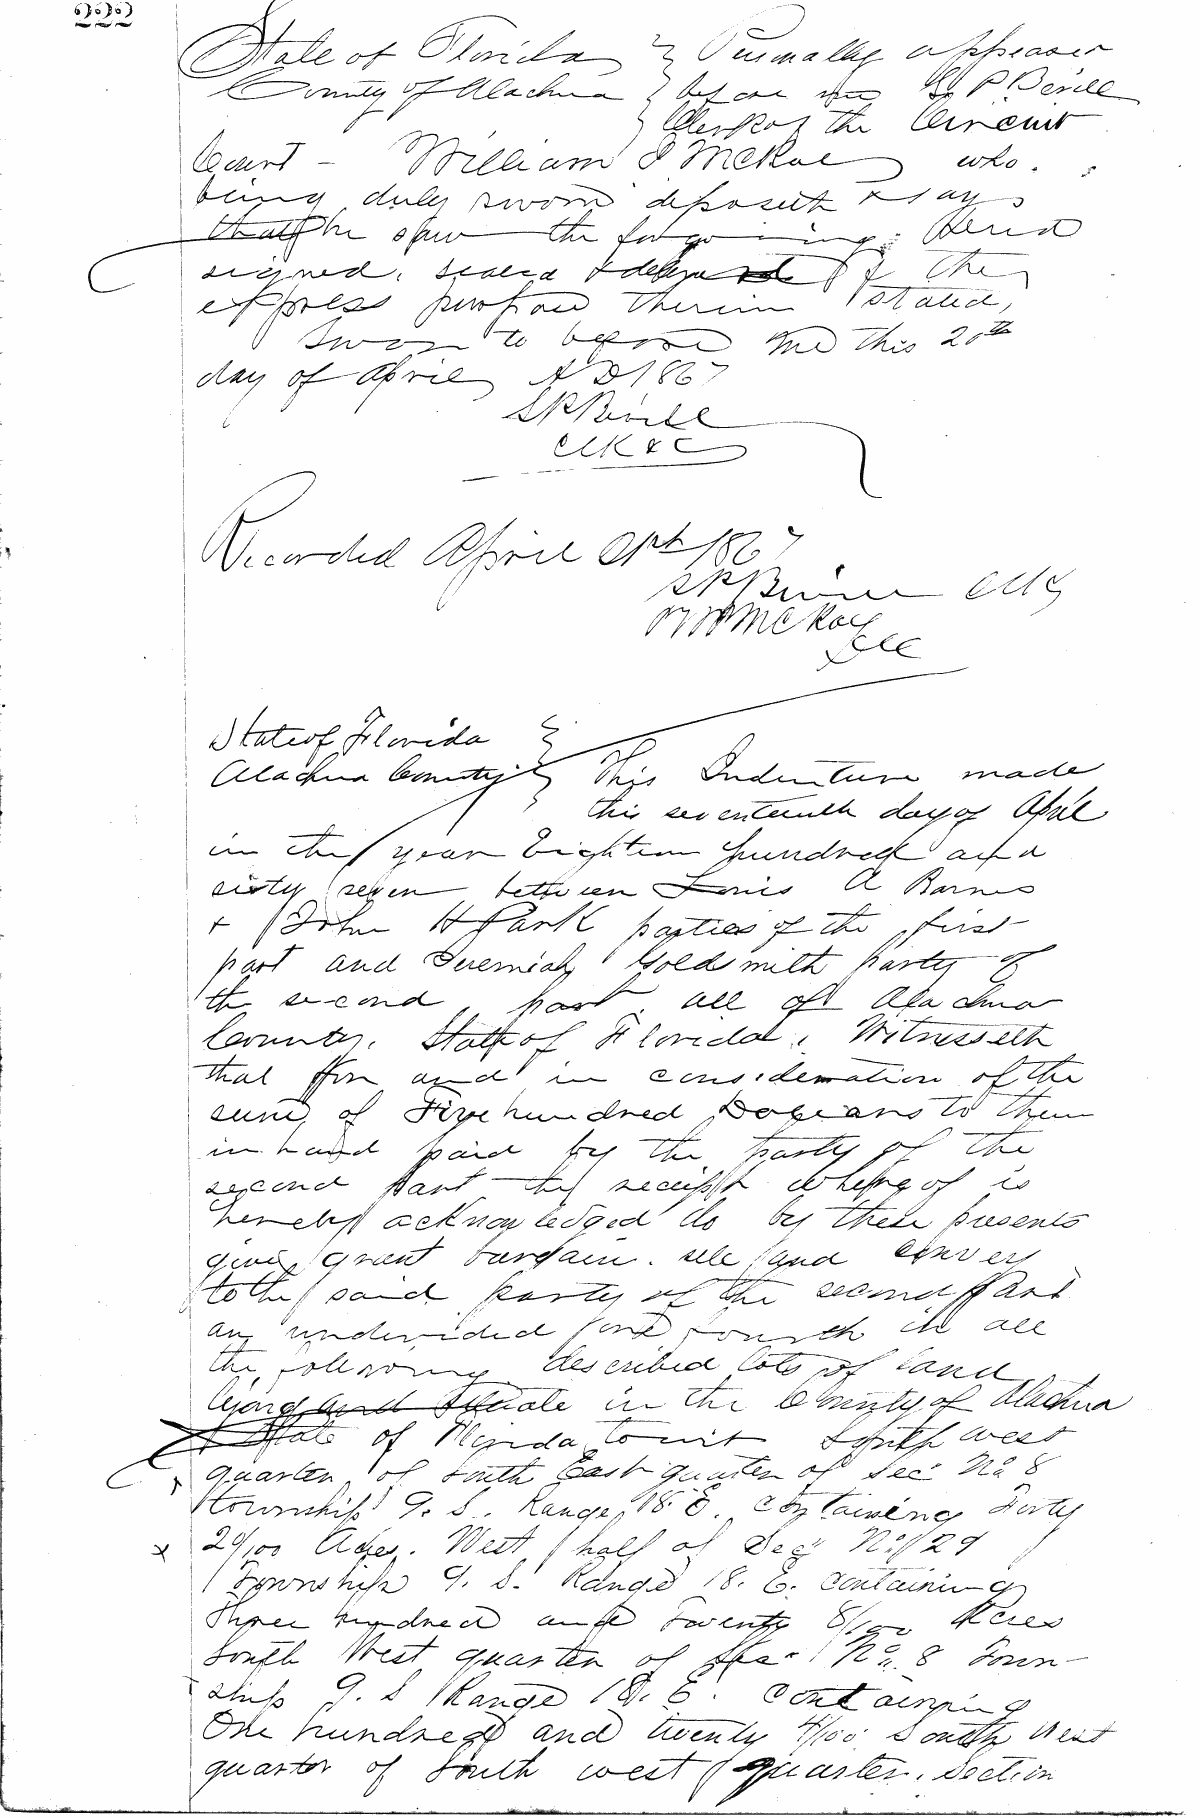 222
State of Florida } Personally appeared
County of Alachua } before me S. P. Bevill
} Clerk of the Circuit
Court - William J McKae who
being duly sworn deposeth & says
that he saw the forgoing Deed
signed, sealed & delivered for the
express purpose therein stated,
Sworn to before me this 20th
day of April A D 1867
S P Bevill
Clk & C
Recorded April 21st 1867
S P Bevill Clk
McKay
DCC
State of Florida }
Alachua County } This Indenture made
this seventeenth day of April
in the year Eighteen hundred and
sixty seven between Louis A Barnes
+ John H Park parties of the first
part and Jeremiah Goldsmith party of
the second part all of Alachua
County, State of Florida, Witnesseth
that for and in consideration of the
sum of Five hundred Dollars to them
in hand paid by the party of the
second part the receipt whereof is
hereby acknowledged do by these presents
give grant bargain. sell and convey
to the said party of the second Part
an undivided one fourth in all
the following described lots of land
lying and Situate in the County of Alachua
& State of Florida, to wit South west
quarter of South East quarter of Sec. No. 8
township 9. S. Range 18 E. containing Forty
29/100 Acres. West half of Sec. No. 29
Township 9. S. Range 18. E. containing
Three hundred and Twenty 8/100 Acres
South West quarter of Sec. No. 8 Town-
ship 9. S Range 18. E. containing
One hundred and twenty 4/100 South West
quarter of South west quarter. Section